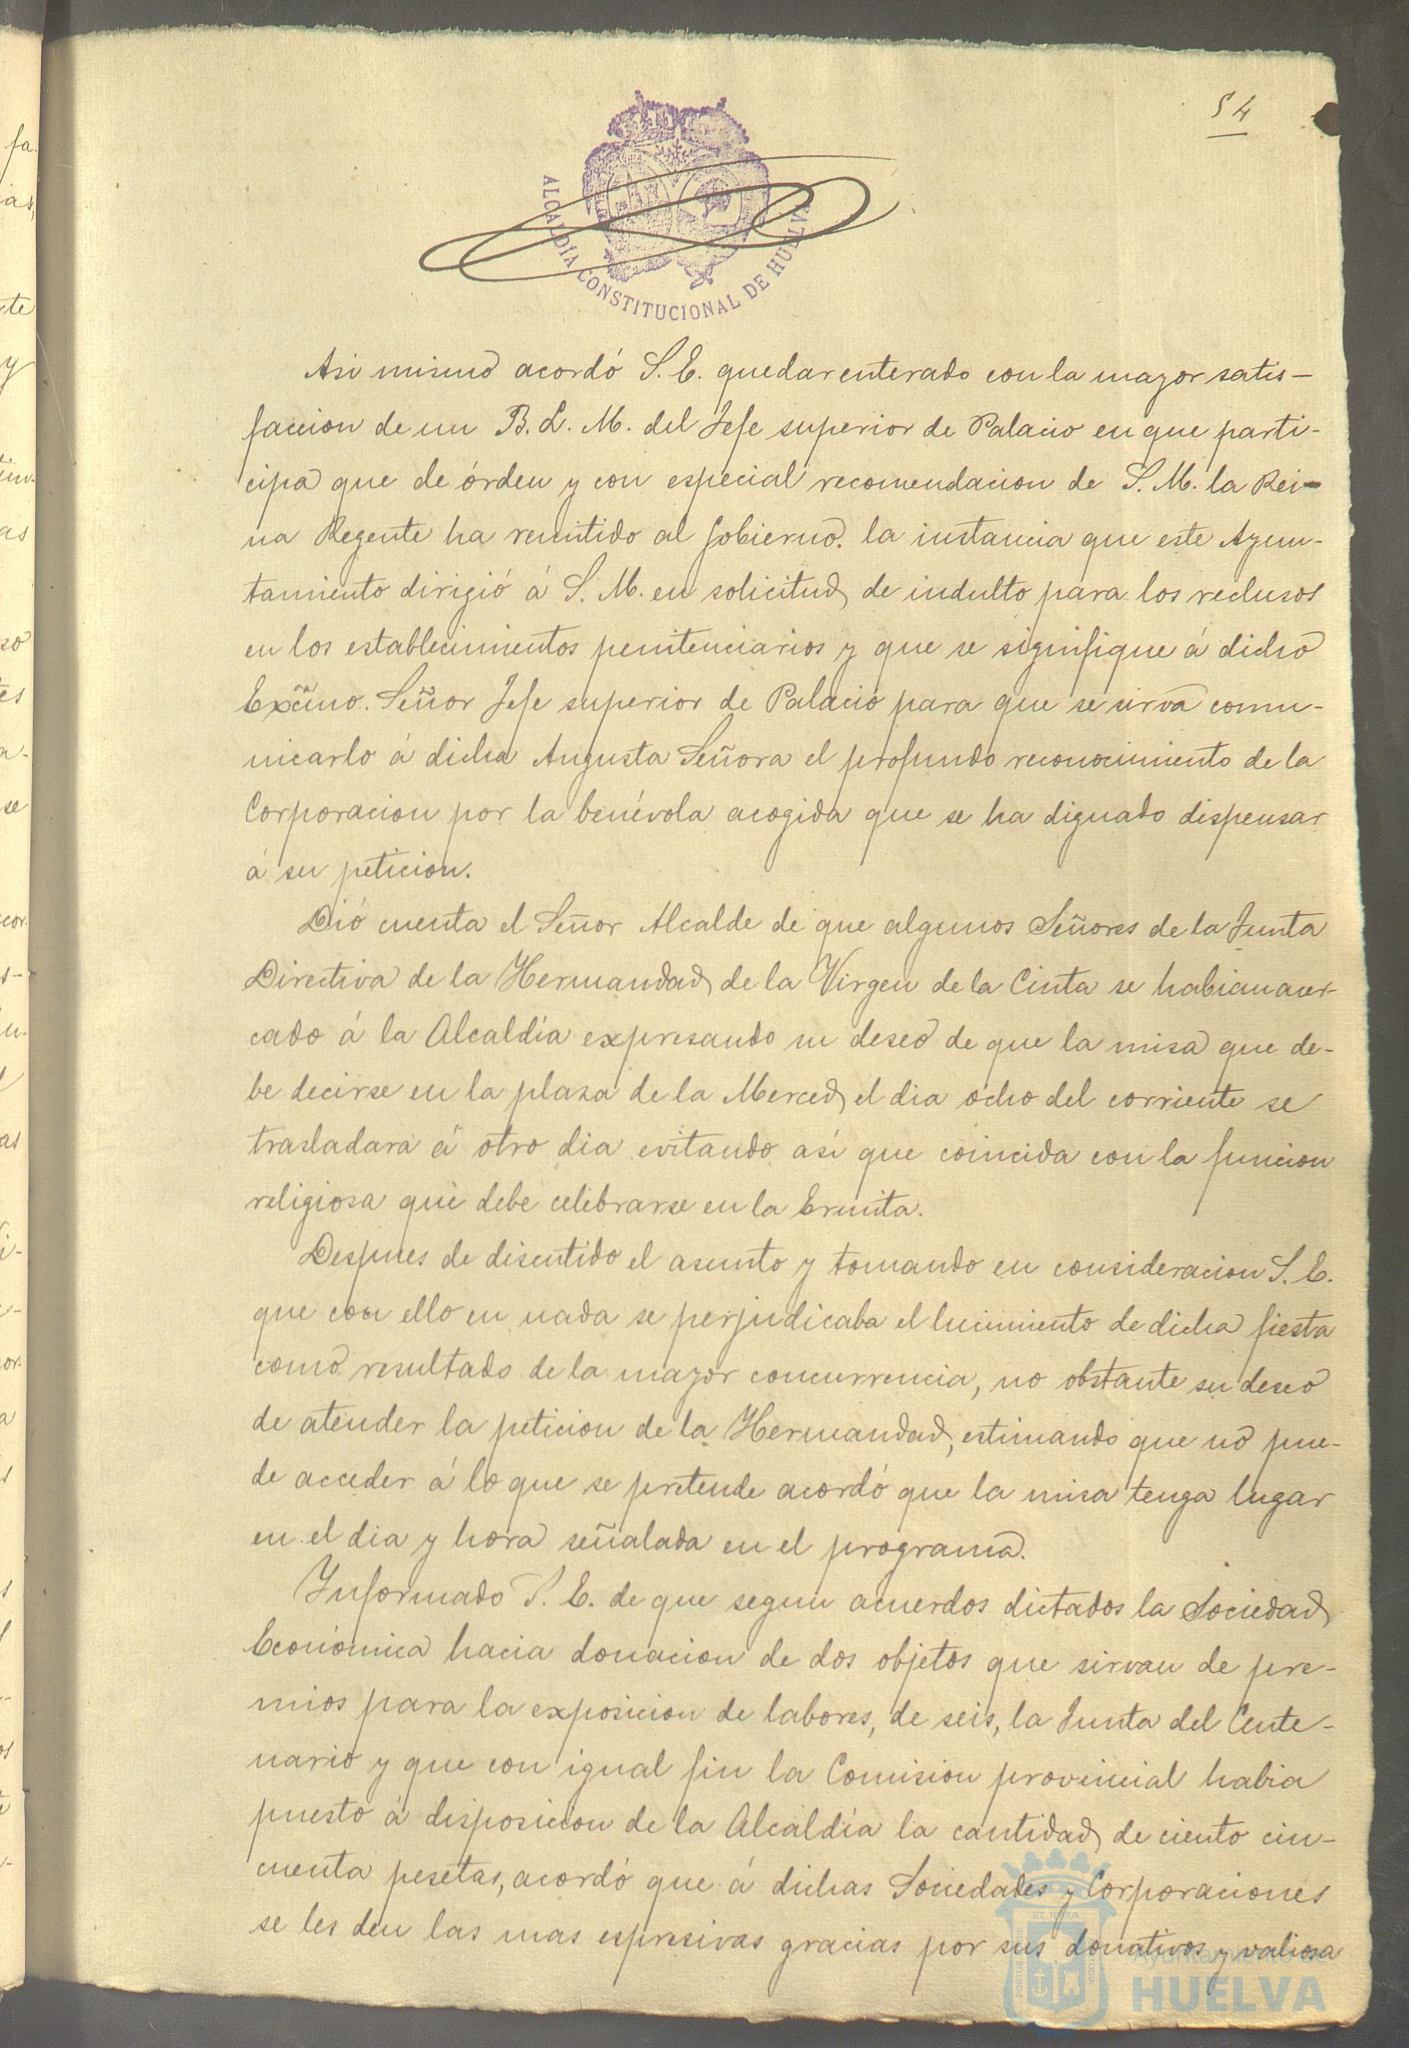 54
ALCALDÍA CONSTITUCIONAL DE HUELVA
Asi mismo acordó S. E. quedar enterado con la mayor satis-
faccion de un B. L. M. del Jefe superior de Palacio en que parti-
cipa que de órden y con especial recomendacion de S. M. la Rei-
na Regente ha remitido al Gobierno. la instancia que este Ayun-
tamiento dirigió á S. M. en solicitud de indulto para los reclusos
en los establecimientos penitenciarios y que se signifique á dicho
Excmo. Señor Jefe superior de Palacio para que se sirva comu-
nicarlo á dicha Augusta Señora el profundo reconocimiento de la
Corporacion por la benévola acogida que se ha dignado dispensar
á su peticion.
Dió cuenta el Señor Alcalde de que algunos Señores de la Junta
Directiva de la Hermandad de la Virgen de la Cinta se habian acer-
cado á la Alcaldía expresando su deseo de que la misa que de-
be decirse en la plaza de la Merced el dia ocho del corriente se
trasladara á otro dia evitando asi que coincida con la funcion
religiosa que debe celebrarse en la Ermita.
Despues de discutido el asunto y tomando en consideracion S. E.
que con ello en nada se perjudicaba el lucimiento de dicha fiesta
como resultado de la mayor concurrencia, no obstante su deseo
de atender la peticion de la Hermandad, estimando que no pue-
de acceder á lo que se pretende acordó que la misa tenga lugar
en el dia y hora señalada en el programa.
Informado S. E. de que segun acuerdos dictados la Sociedad
Económica hacia donacion de dos objetos que sirvan de pre-
mios para la exposicion de labores, de seis, la Junta del Cente-
nario y que con igual fin la Comision provincial habia
puesto á disposicion de la Alcaldía la cantidad de ciento cin-
cuenta pesetas, acordó que á dichas Sociedades y Corporaciones
se les den las mas espresivas gracias por sus donativos y valiosa
Ayuntamiento de
HUELVA